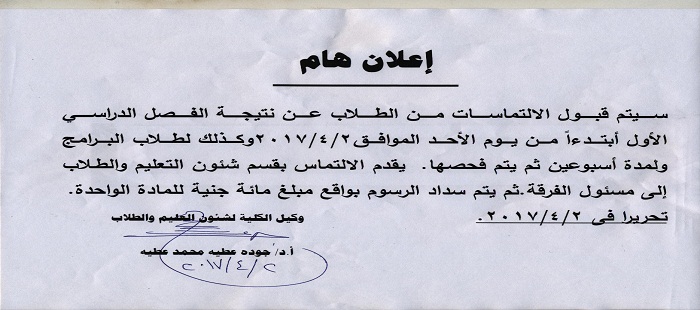 إعلان هام
سيتم قبول الالتماسات من الطلاب عن نتيجة الفصل الدراسي
الأول أبتدءاً من يوم الأحد الموافق٢٠١٧/٤/٢وكذلك لطلاب البرامج
ولمدة أسبوعين ثم يتم فحصها. يقدم الالتماس بقسم شئون التعليم والطلاب
إلى مسئول الفرقة.ثم يتم سداد الرسوم بواقع مبلغ مائة جنية للمادة الواحدة.
تحريرا فى ٢٠١٧/٤/٢.
وكيل الكلية لشئون التعليم والطلاب
أ.د/ جوده عطيه محمد عطيه
٢٠١٧/٤/٢